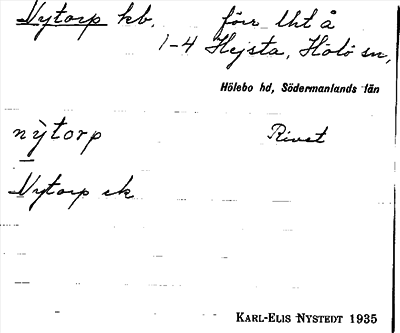 Nytorp kb. förr lht å
1-4 Hejsta, Hölö sn,
Hölebo hd, Södermanlands län
nỳtorp Rivet
Nytorp ek
KARL-ELIS NYSTEDT 1935